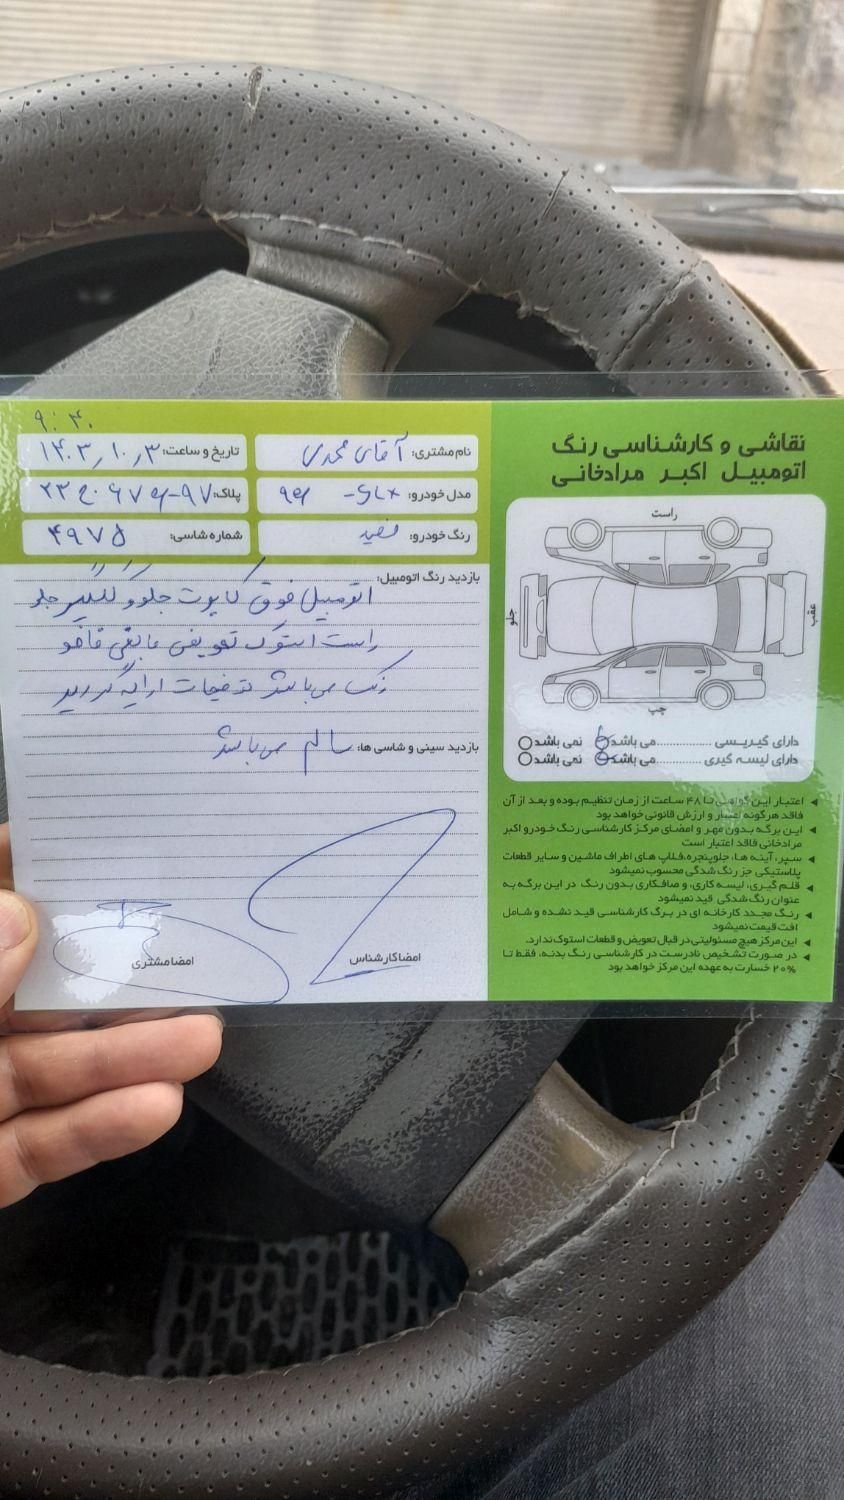 نقاشی و کارشناسی رنگ
اتومبیل اکبر مرادخانی
۹:۴۰
نام مشتری: آقای محمدی
تاریخ و ساعت: ۱۴۰۳/۱۰/۳
مدل خودرو: SLX -
پلاک:
رنگ خودرو: سفید
شماره شاسی: ۴۹۷۵
بازدید رنگ اتومبیل:
اتومبیل فوق کاپوت جلو و گلگیر جلو
راست استوک تعویض مابقی فاقد
رنگ می باشد توضیحات ارائه گردید
بازدید سینی و شاسی ها: سالم می باشد
امضا کارشناس
امضا مشتری
راست
جلو
عقب
چپ
دارای گیریسی ............... می باشد نمی باشد
دارای لیسه گیری ............... می باشد نمی باشد
اعتبار این گواهی تا ۴۸ ساعت از زمان تنظیم بوده و بعد از آن
فاقد هرگونه اعتبار و ارزش قانونی خواهد بود
این برگه بدون مهر و امضای مرکز کارشناسی رنگ خودرو اکبر
مرادخانی فاقد اعتبار است
سپر، آینه ها، جلوپنجره، فلاپ های اطراف ماشین و سایر قطعات
پلاستیکی جز رنگ شدگی محسوب نمیشود
قلم گیری، لیسه کاری، و صافکاری بدون رنگ در این برگه به
عنوان رنگ شدگی قید نمیشود
رنگ مجدد کارخانه ای در برگ کارشناسی قید نشده و شامل
افت قیمت نمیشود
این مرکز هیچ مسئولیتی در قبال تعویض و قطعات استوک ندارد.
در صورت تشخیص نادرست در کارشناسی رنگ بدنه، فقط تا
۲۰% خسارت به عهده این مرکز خواهد بود